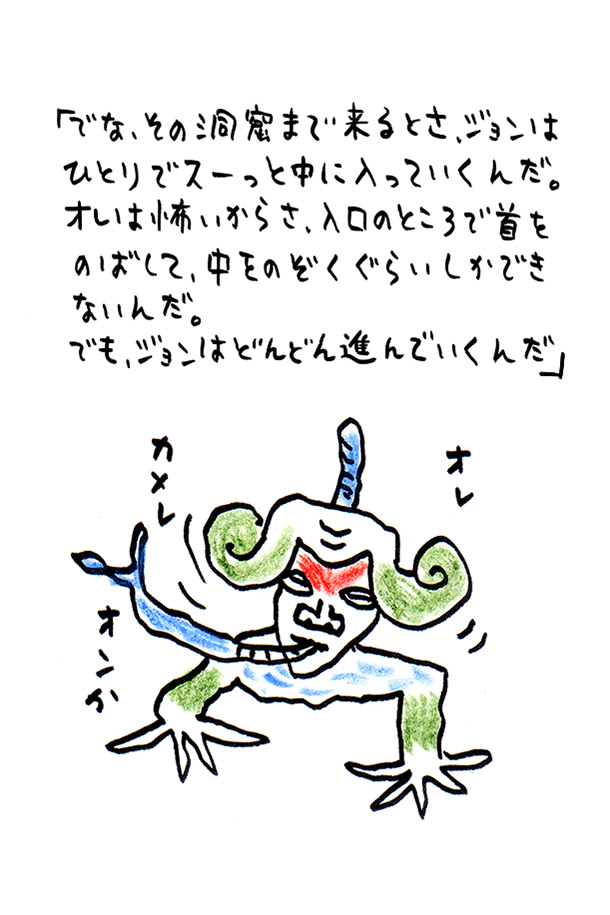 「でな、その洞窟まで来るとさ、ジョンは
ひとりでスーっと中に入っていくんだ。
オレは怖いからさ、入口のところで首を
のばして、中をのぞくぐらいしかでき
ないんだ。
でも、ジョンはどんどん進んでいくんだ」
オレ
カメレ
オンか